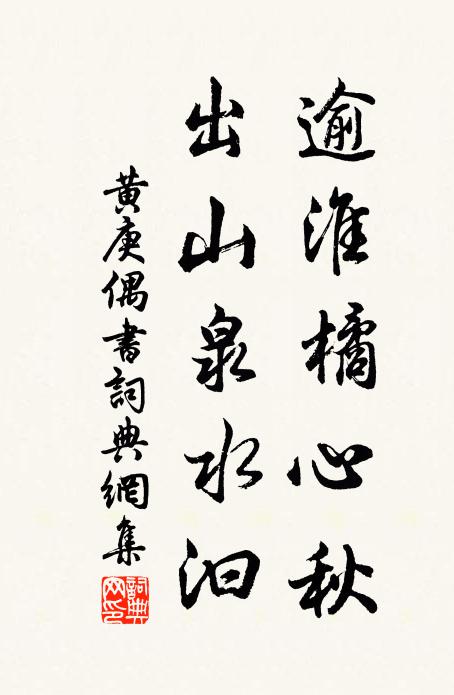 逾淮橘心秋
出山泉水汩
黄庚偶書詞典網集
詞典网印